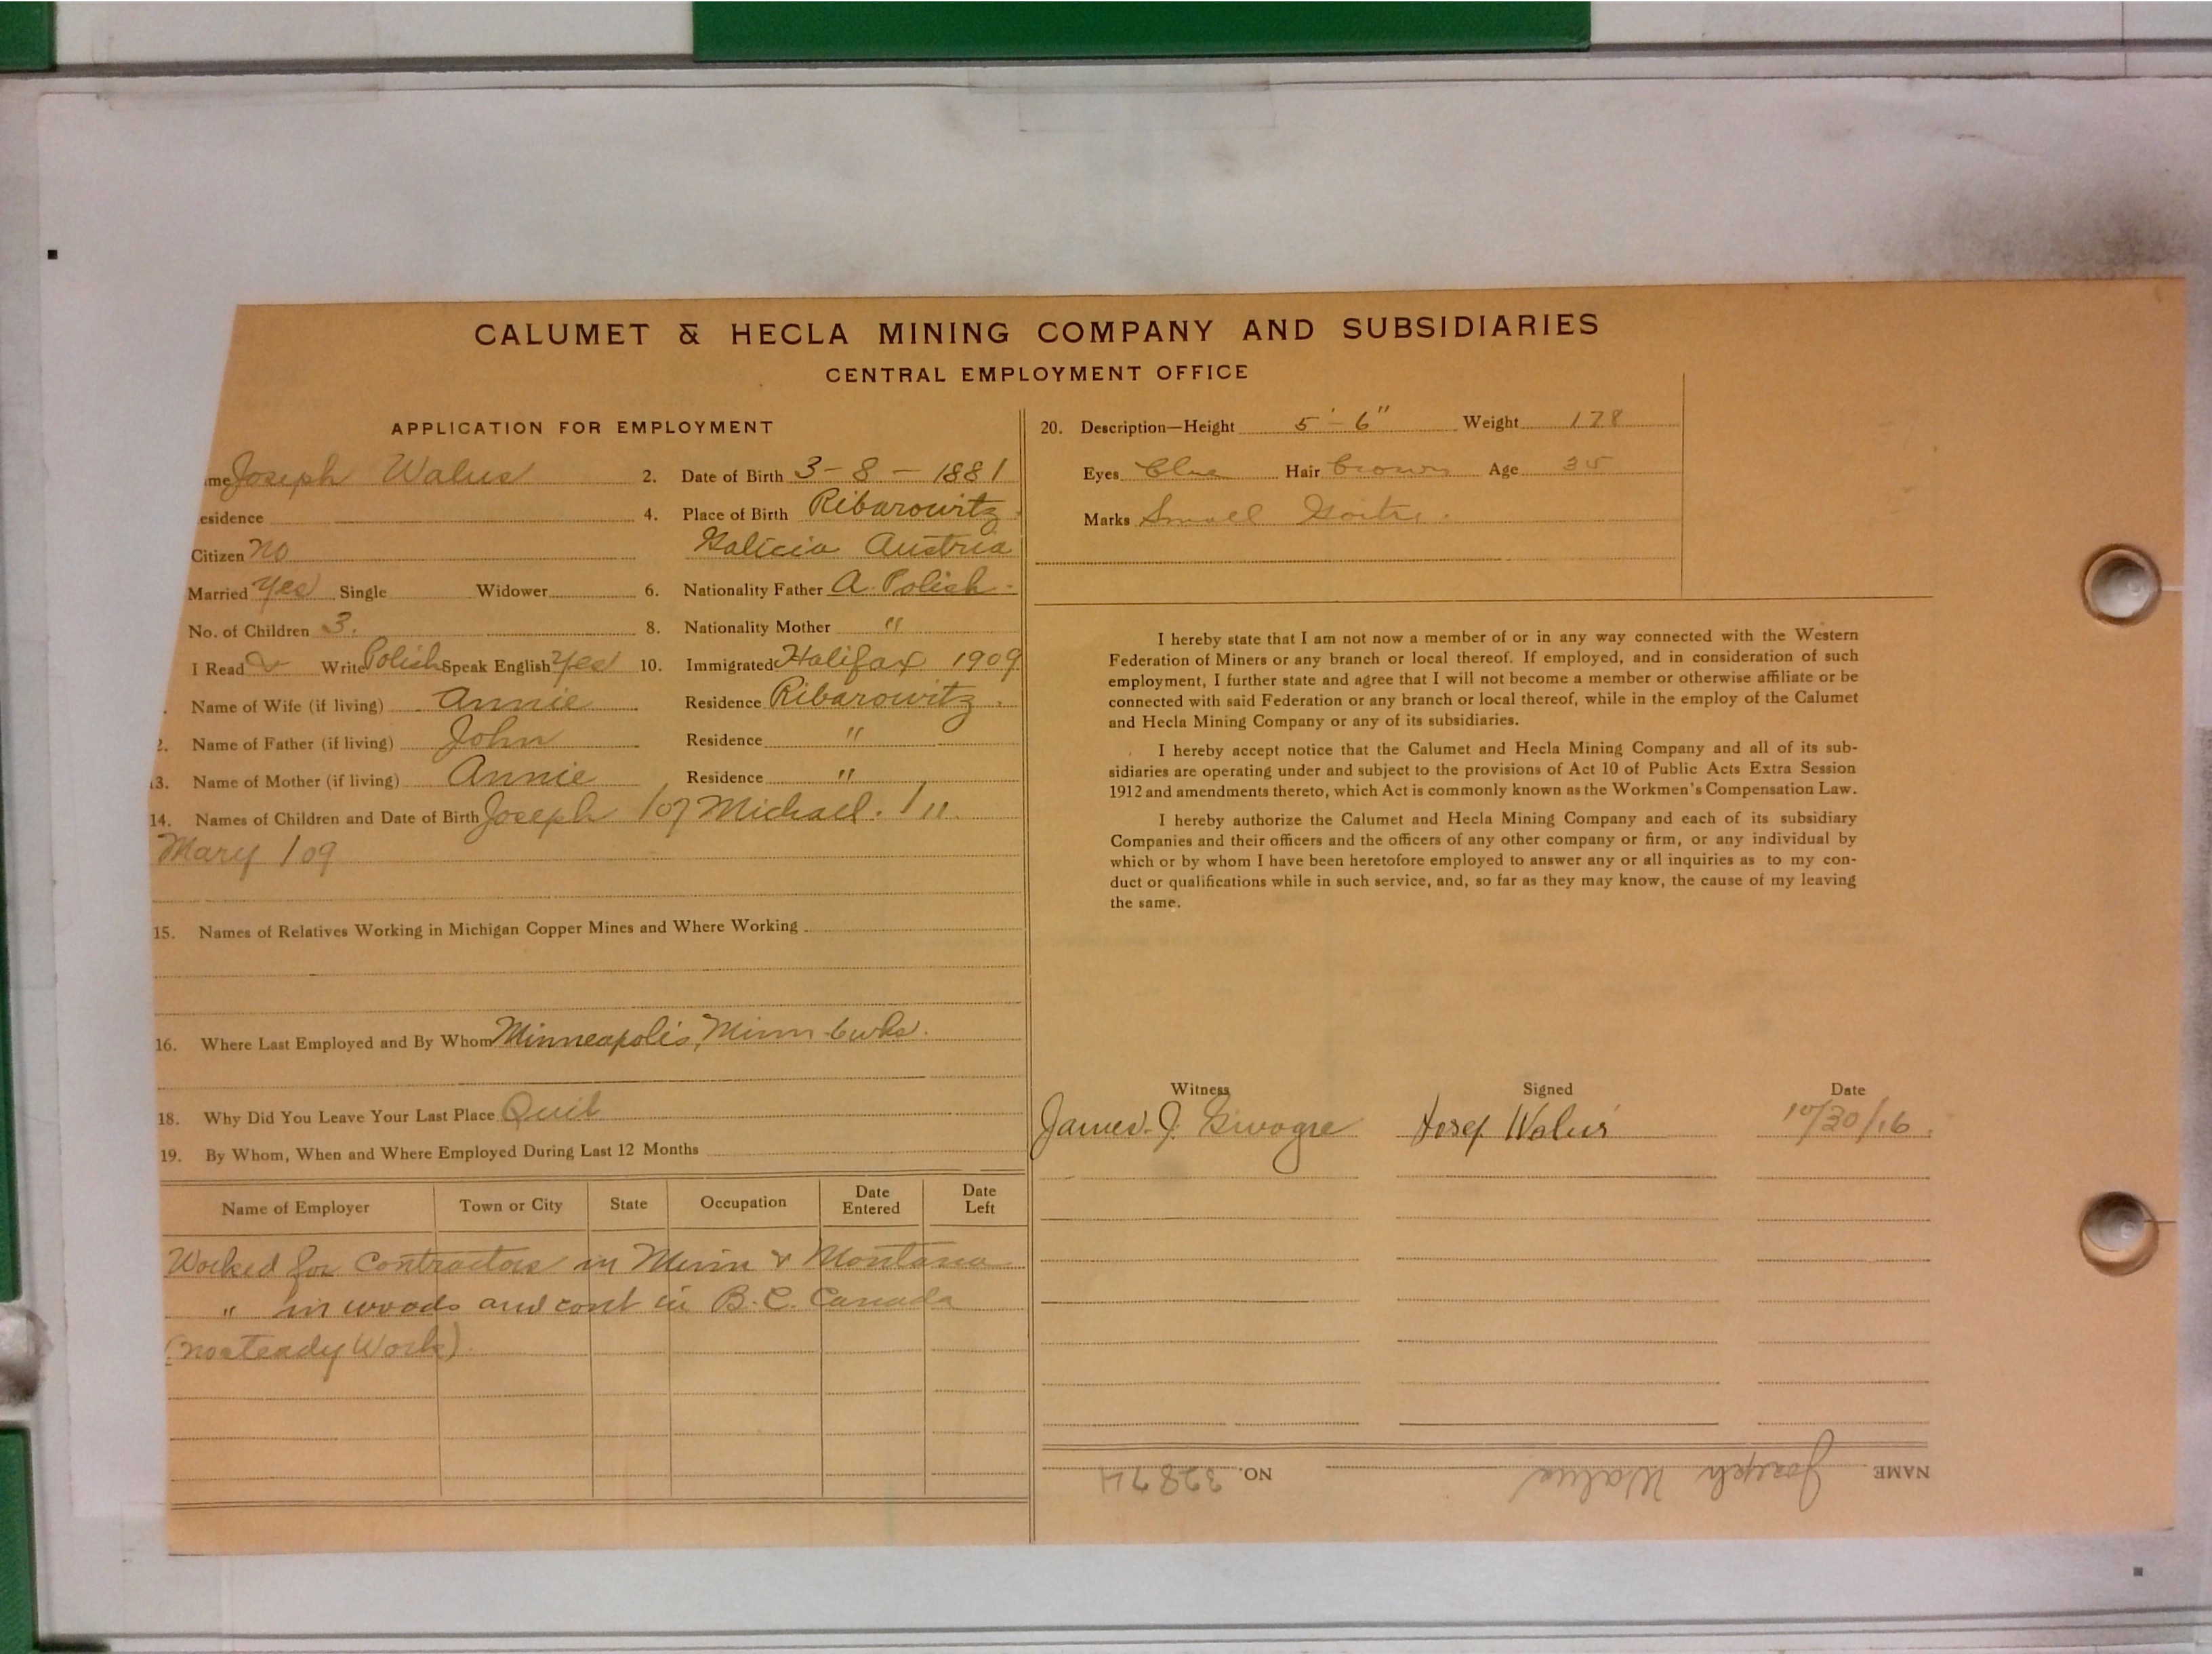 CALUMET & HECLA MINING COMPANY AND SUBSIDIARIES
CENTRAL EMPLOYMENT OFFICE
APPLICATION FOR EMPLOYMENT
me Joseph Walus 2. Date of Birth 3-8-1881
esidence 4. Place of Birth Ribarowitz
Citizen no Galicia Austria
Married Yes Single Widower 6. Nationality Father A. Polish
No. of Children 3. 8. Nationality Mother "
I Read & Write Polish Speak English Yes 10. Immigrated Halifax 1909
Name of Wife (if living) Annie Residence Ribarowitz.
2. Name of Father (if living) John Residence "
13. Name of Mother (if living) Annie Residence "
14. Names of Children and Date of Birth Joseph /07 Michael. /11.
Mary /09
15. Names of Relatives Working in Michigan Copper Mines and Where Working
16. Where Last Employed and By Whom Minneapolis, Minn 6wks.
18. Why Did You Leave Your Last Place Quit
19. By Whom, When and Where Employed During Last 12 Months
Name of Employer Town or City State Occupation Date Entered Date Left
Worked for Contractors in Minn & Montana
" in woods and cont in B.C. Canada
(no steady Work)
20. Description—Height 5'-6" Weight 178
Eyes Blue Hair brown Age 35
Marks Small Goitre.
I hereby state that I am not now a member of or in any way connected with the Western
Federation of Miners or any branch or local thereof. If employed, and in consideration of such
employment, I further state and agree that I will not become a member or otherwise affiliate or be
connected with said Federation or any branch or local thereof, while in the employ of the Calumet
and Hecla Mining Company or any of its subsidiaries.
I hereby accept notice that the Calumet and Hecla Mining Company and all of its sub-
sidiaries are operating under and subject to the provisions of Act 10 of Public Acts Extra Session
1912 and amendments thereto, which Act is commonly known as the Workmen's Compensation Law.
I hereby authorize the Calumet and Hecla Mining Company and each of its subsidiary
Companies and their officers and the officers of any other company or firm, or any individual by
which or by whom I have been heretofore employed to answer any or all inquiries as to my con-
duct or qualifications while in such service, and, so far as they may know, the cause of my leaving
the same.
Witness Signed Date
James. J. Josef Walus 10/30/16.
NAME Joseph Walus NO. 32874